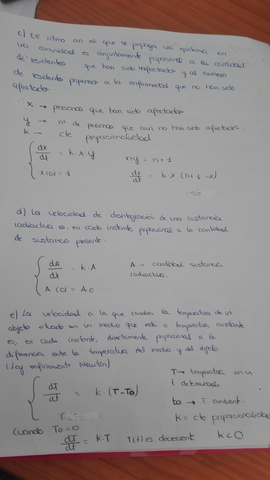 c) El ritmo con el que se propaga una epidemia en
una comunidad es conjuntamente proporcional a la cantidad
de residentes que han sido infectados y al número
de residentes propensos a la enfermedad que no han sido
afectados.
x → personas que han sido afectadas
y → nº de personas que aún no han sido afectadas
k → cte proporcionalidad
dx/dt = k x y
x+y = n+1
x(0) = 1
dx/dt = k x (n+1-x)
d) La velocidad de desintegración de una sustancia
radiactiva es, en cada instante, proporcional a la cantidad
de sustancia presente.
dA/dt = k·A
A → cantidad sustancia
radiactiva.
A(0) = A0
e) La velocidad a la que cambia la temperatura de un
objeto situado en un medio que está a temperatura constante
es, en cada instante, directamente proporcional a la
diferencia entre la temperatura del medio y del objeto
(Ley enfriamiento Newton)
dT/dt = k·(T-T0)
T → temperatura en un
t determinado
to → T. ambient.
k = cte proporcionalidad
Cuando T0=0
dT/dt = k·T T(t) es decreciente k<0